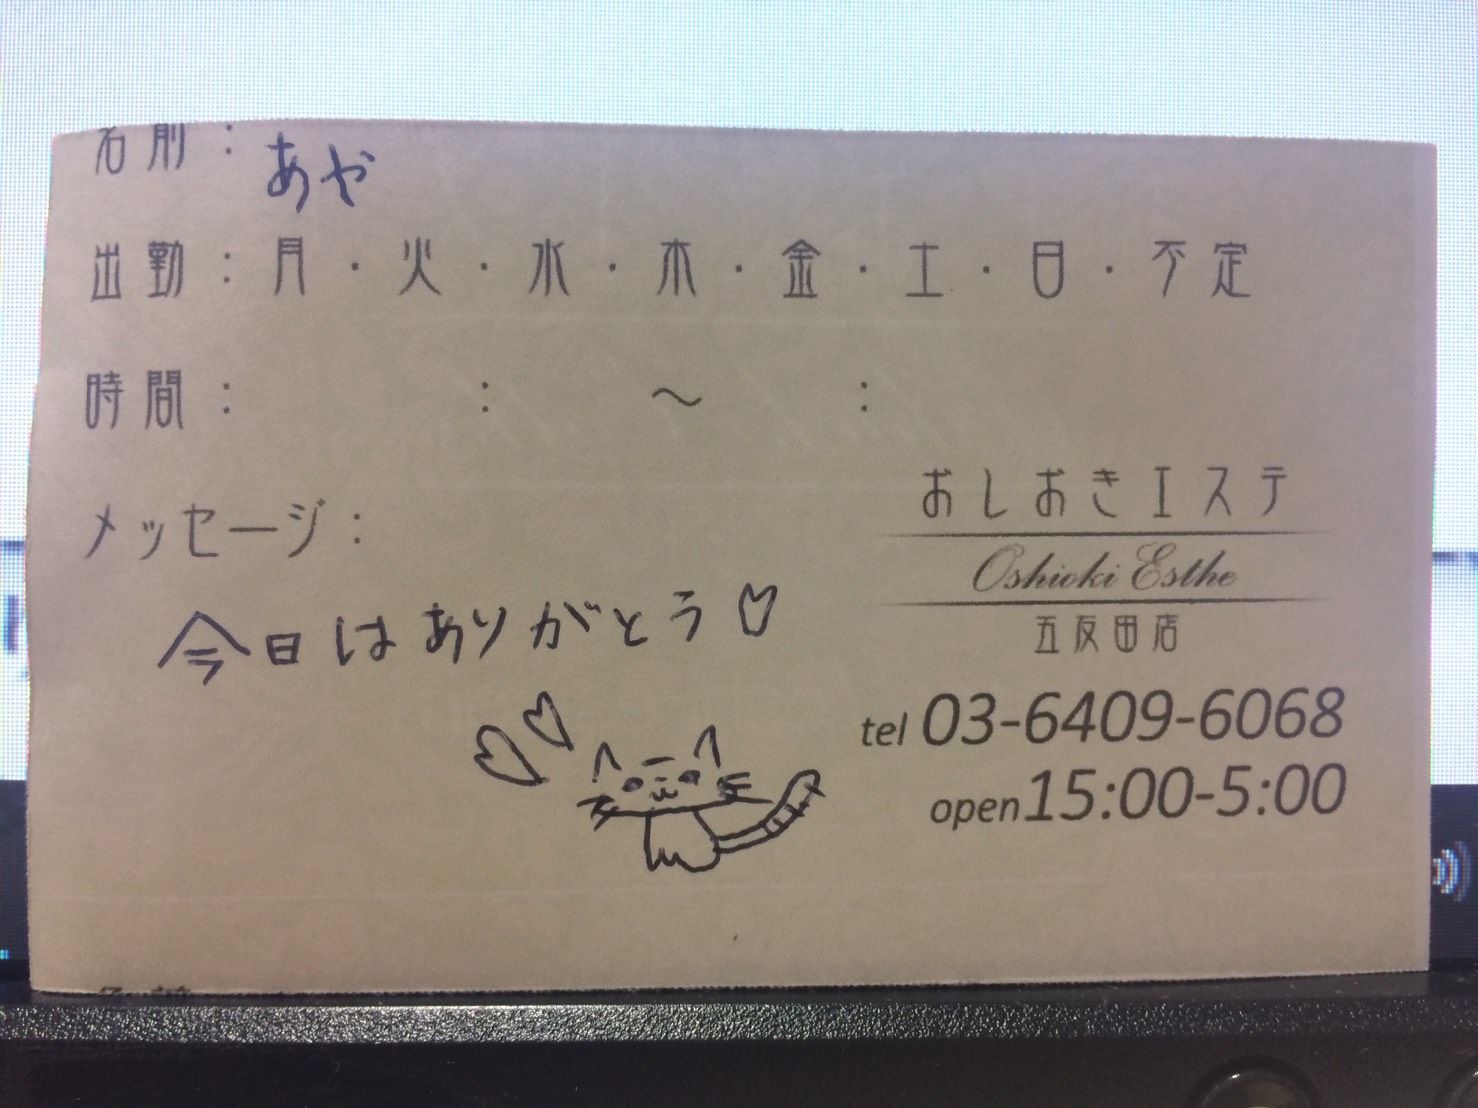 名前：あや
出勤：月・火・水・木・金・土・日・不定
時間：　：　～　：
メッセージ：
今日はありがとう♡
おしおきエステ
Oshioki Esthe
五反田店
tel 03-6409-6068
open 15:00-5:00